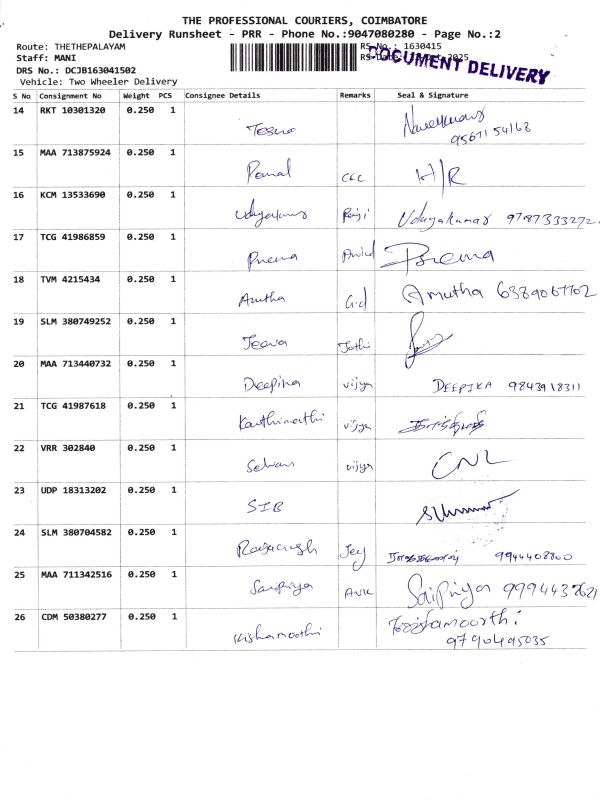 THE PROFESSIONAL COURIERS, COIMBATORE
Delivery Runsheet - PRR - Phone No.:9047080280 - Page No.:2
Route: THETHEPALAYAM
RS No.: 1630415
Staff: MANI
DOCUMENT DELIVERY
DRS No.: DCJB163041502
Vehicle: Two Wheeler Delivery
S No Consignment No Weight PCS Consignee Details Remarks Seal & Signature
14 RKT 10301320 0.250 1
15 MAA 713875924 0.250 1 H/R
16 KCM 13533690 0.250 1 Udayakumar Udayakumar 9787333272
17 TCG 41986859 0.250 1 Prema Prema
18 TVM 4215434 0.250 1 Amutha Amutha
19 SLM 380749252 0.250 1 Jeeva Jothi
20 MAA 713440732 0.250 1 Deepika vijya DEEPIKA 9843918311
21 TCG 41987618 0.250 1 vijya
22 VRR 302840 0.250 1 Selvan vijya
23 UDP 18313202 0.250 1 SIB
24 SLM 380704582 0.250 1 Jey 9944408800
25 MAA 711342516 0.250 1 Saipriya Saipriya
26 CDM 50380277 0.250 1 Kishamoothi
9790495035